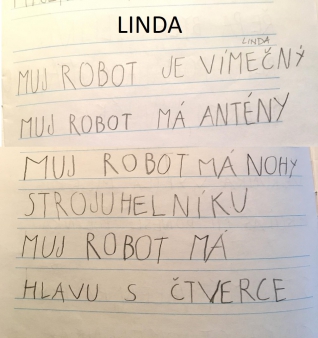 LINDA
LINDA
MUJ ROBOT JE VÍMEČNÝ
MUJ ROBOT MÁ ANTÉNY
MUJ ROBOT MÁ NOHY
STROJUHELNÍKU
MUJ ROBOT MÁ
HLAVU S ČTVERCE